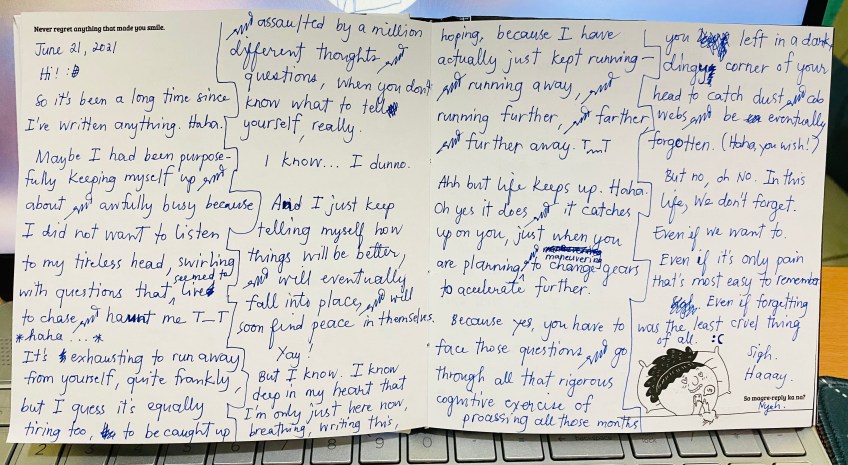 Never regret anything that made you smile.
June 21, 2021
Hi! :D
So it's been a long time since
I've written anything. Haha.
Maybe I had been purpose-
fully keeping myself up and
about and awfully busy because
I did not want to listen
to my tireless head, swirling
with questions that seemed to live
to chase and haunt me T_T
*haha...*
It's exhausting to run away
from yourself, quite frankly,
but I guess it's equally
tiring too, to be caught up
and assaulted by a million
different thoughts and
questions, when you don't
know what to tell
yourself, really.
I know... I dunno.
And I just keep
telling myself how
things will be better,
and will eventually
fall into place, and will
soon find peace in themselves.
Yay!
But I know. I know
deep in my heart that
I'm only just here now,
breathing, writing this,
hoping, because I have
actually just kept running—
and running away, and
running further, and farther
and further away. T_T
Ahh but life keeps up. Haha.
Oh yes it does, and it catches
up on you, just when you
are planning and maneuvering
to change gears
to acelerate further.
Because yes, you have to
face those questions and go
through all that rigorous
cognitive exercise of
processing all those months
you left in a dark,
dingy corner of your
head to catch dust, and cob
webs, and be eventually
forgotten. (Haha, you wish!)
But no, oh No. In this
life, We don't forget.
Even if we want to.
Even if it's only pain
that's most easy to remember
Sigh. Even if forgetting
was the least cruel thing
of all. :(
Sigh.
Haaay.
So magre-reply ka na?
Myeh.